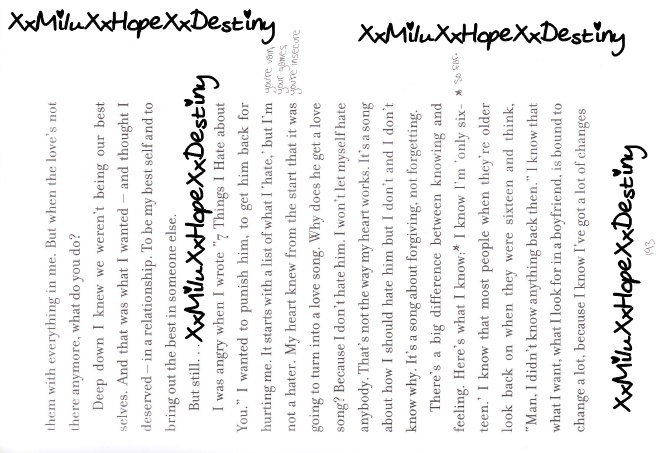 XxMiluXxHopeXxDestiny
XxMiluXxHopeXxDestiny
them with everything in me. But when the love's not
there anymore, what do you do?
Deep down I knew we weren't being our best
selves. And that was what I wanted – and thought I
deserved – in a relationship. To be my best self and to
bring out the best in someone else.
But still. . .
XxMiluXxHopeXxDestiny
I was angry when I wrote "7 Things I Hate about
You." I wanted to punish him, to get him back for
hurting me. It starts with a list of what I 'hate,' but I'm
you're vain,
your games,
you're insecure
not a hater. My heart knew from the start that it was
going to turn into a love song. Why does he get a love
song? Because I don't hate him. I won't let myself hate
anybody. That's not the way my heart works. It's a song
about how I should hate him but I don't and I don't
know why. It's a song about forgiving, not forgetting.
There's a big difference between knowing and
feeling. Here's what I know:* I know I'm 'only six-
* so far.
teen.' I know that most people when they're older
look back on when they were sixteen and think,
"Man, I didn't know anything back then." I know that
what I want, what I look for in a boyfriend, is bound to
change a lot, because I know I've got a lot of changes
XxMiluXxHopeXxDestiny
193